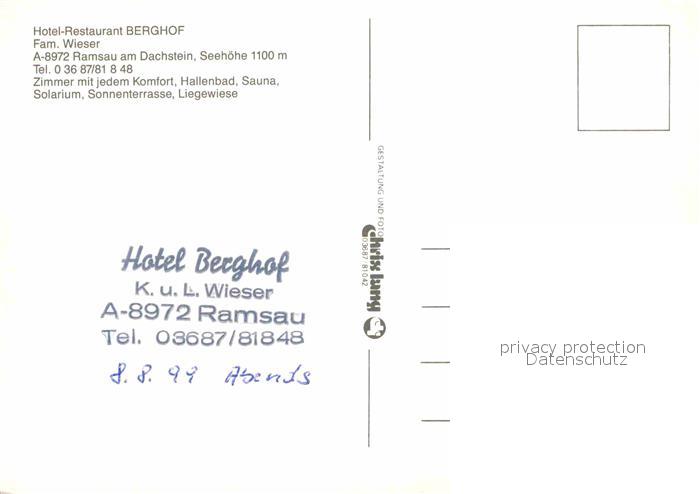 Hotel-Restaurant BERGHOF
Fam. Wieser
A-8972 Ramsau am Dachstein, Seehöhe 1100 m
Tel. 0 36 87/81 8 48
Zimmer mit jedem Komfort, Hallenbad, Sauna,
Solarium, Sonnenterrasse, Liegewiese
GESTALTUNG UND FOTO
chriss lung
03687/81042
Hotel Berghof
K. u. L. Wieser
A-8972 Ramsau
Tel. 03687/81848
8. 8. 99 Abends
privacy protection
Datenschutz